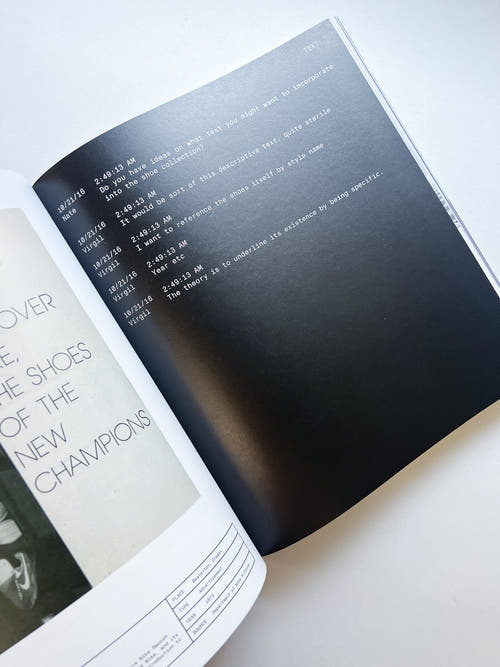 OVER
E,
HE SHOES
OF THE
NEW
CHAMPIONS
PLACE Beaverton, Oregon
TYPE Advertisement
YEAR
SOURCE Department of Nike Archives
TEXT
10/21/16 2:49:13 AM
Nate Do you have ideas on what text you might want to incorporate
into the shoe collection?
10/21/16 2:49:13 AM
Virgil It would be sort of this descriptive text, quite sterile
10/21/16 2:49:13 AM
Virgil I want to reference the shoes itself by style name
10/21/16 2:49:13 AM
Virgil Year etc
10/21/16 2:49:13 AM
Virgil The theory is to underline its existence by being specific.